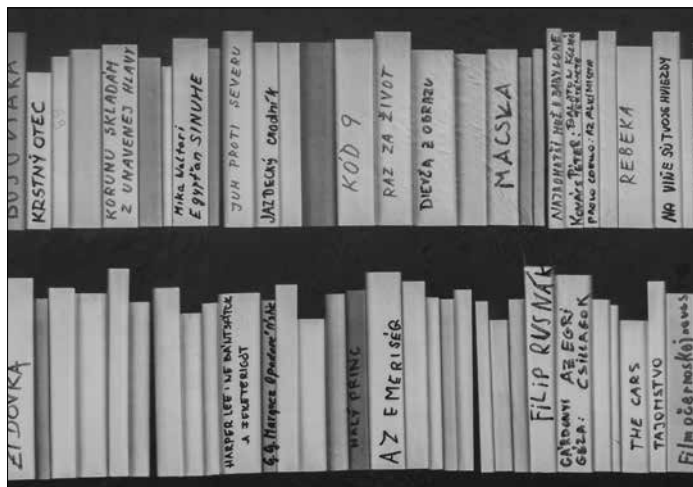 KRSTNÝ OTEC
KORUNU SKLADÁM
Z UNAVENEJ HLAVY
Mika Waltari
Egypťan SINUHE
JUH PROTI SEVERU
JAZDECKÝ CHODNÍK
KÓD 9
RAZ ZA ŽIVOT
DIEVČA Z OBRAZU
MACSKA
NAJBOHATŠÍ MUŽ V BABYLONE
KOVÁCS PÉTER:
PAOLO COELHO: AZ ALKIMISTA
REBEKA
NA VINE SÚ TVOJE HVIEZDY
ŽIDOVKA
HARPER LEE: NE BÁNTSÁTOK
A FEKETERIGÓT
G.G. Marquez
MALÝ PRINC
AZ EMERISÉG
FILIP RUSNÁK
GÁRDONYI GÉZA:
AZ EGRI CSILLAGOK
THE CARS
TAJOMSTVO